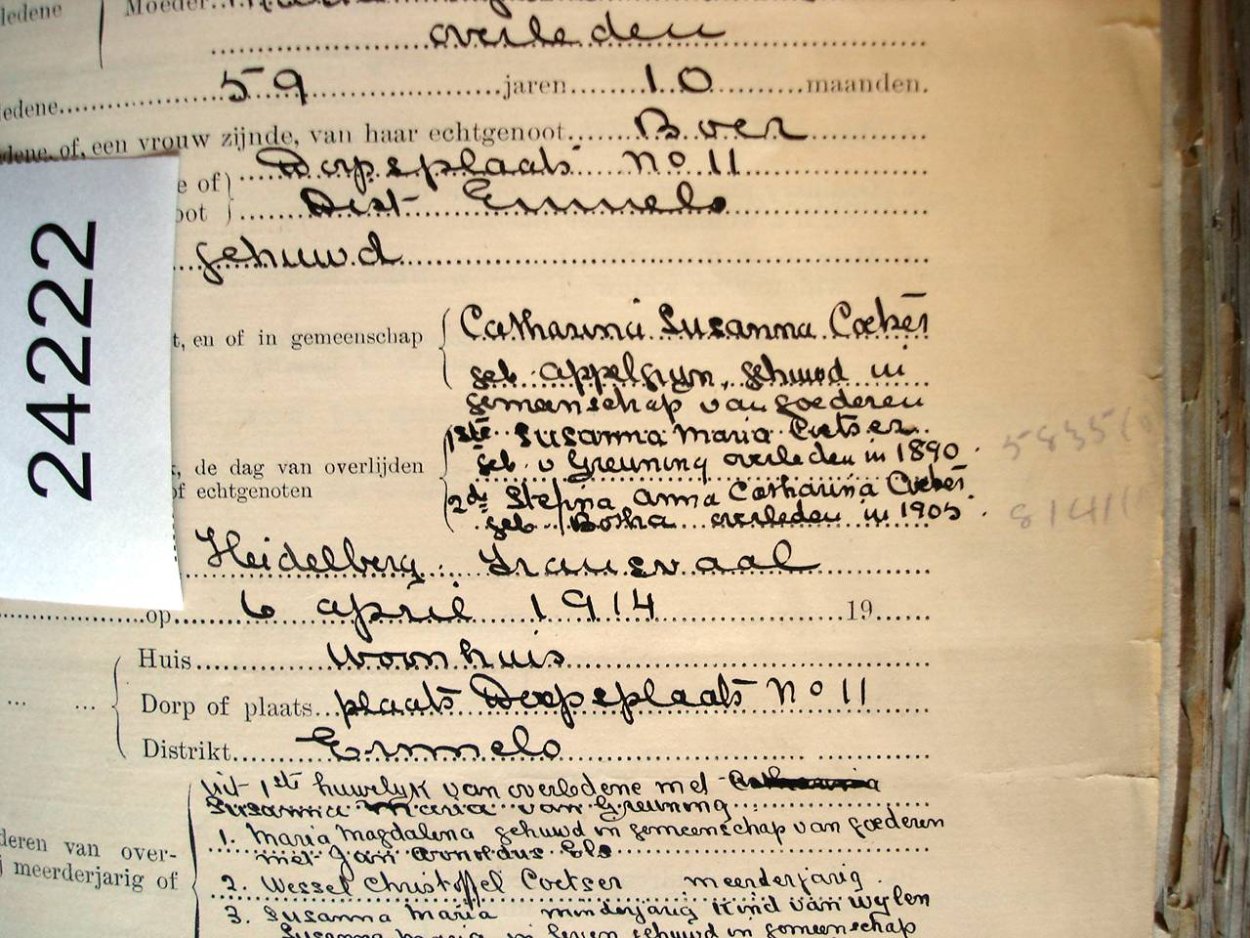 ledene Moeder
overleden
edene 59 jaren 10 maanden.
dene of, een vrouw zijnde, van haar echtgenoot Boer
e of Dorpsplaats no 11
oot Dist Ermelo
gehuwd
t, en of in gemeenschap Catharina Susanna Coetser
geb Appelgryn, gehuwd in
gemeenschap van goederen
1ste Susanna Maria Coetser
, de dag van overlijden geb v Greuning overleden in 1890
f echtgenoten 2de Stefina Anna Catharina Coetser
geb Botha overleden in 1905
5835
8141
Heidelberg Transvaal
op 6 april 1914 19
Huis Woonhuis
Dorp of plaats plaats Dorpsplaats No 11
Distrikt Ermelo
Uit 1ste huwelyk van overledene met
Susanna Maria van Greuning
1. Maria Magdalena gehuwd in gemeenschap van goederen
deren van over- met Jan Arnoldus Els
j meerderjarig of 2. Wessel Christoffel Coetser meerderjarig.
3. Susanna Maria minderjarig kind van wylen
Susanna Maria in leven gehuwd in gemeenschap
24222